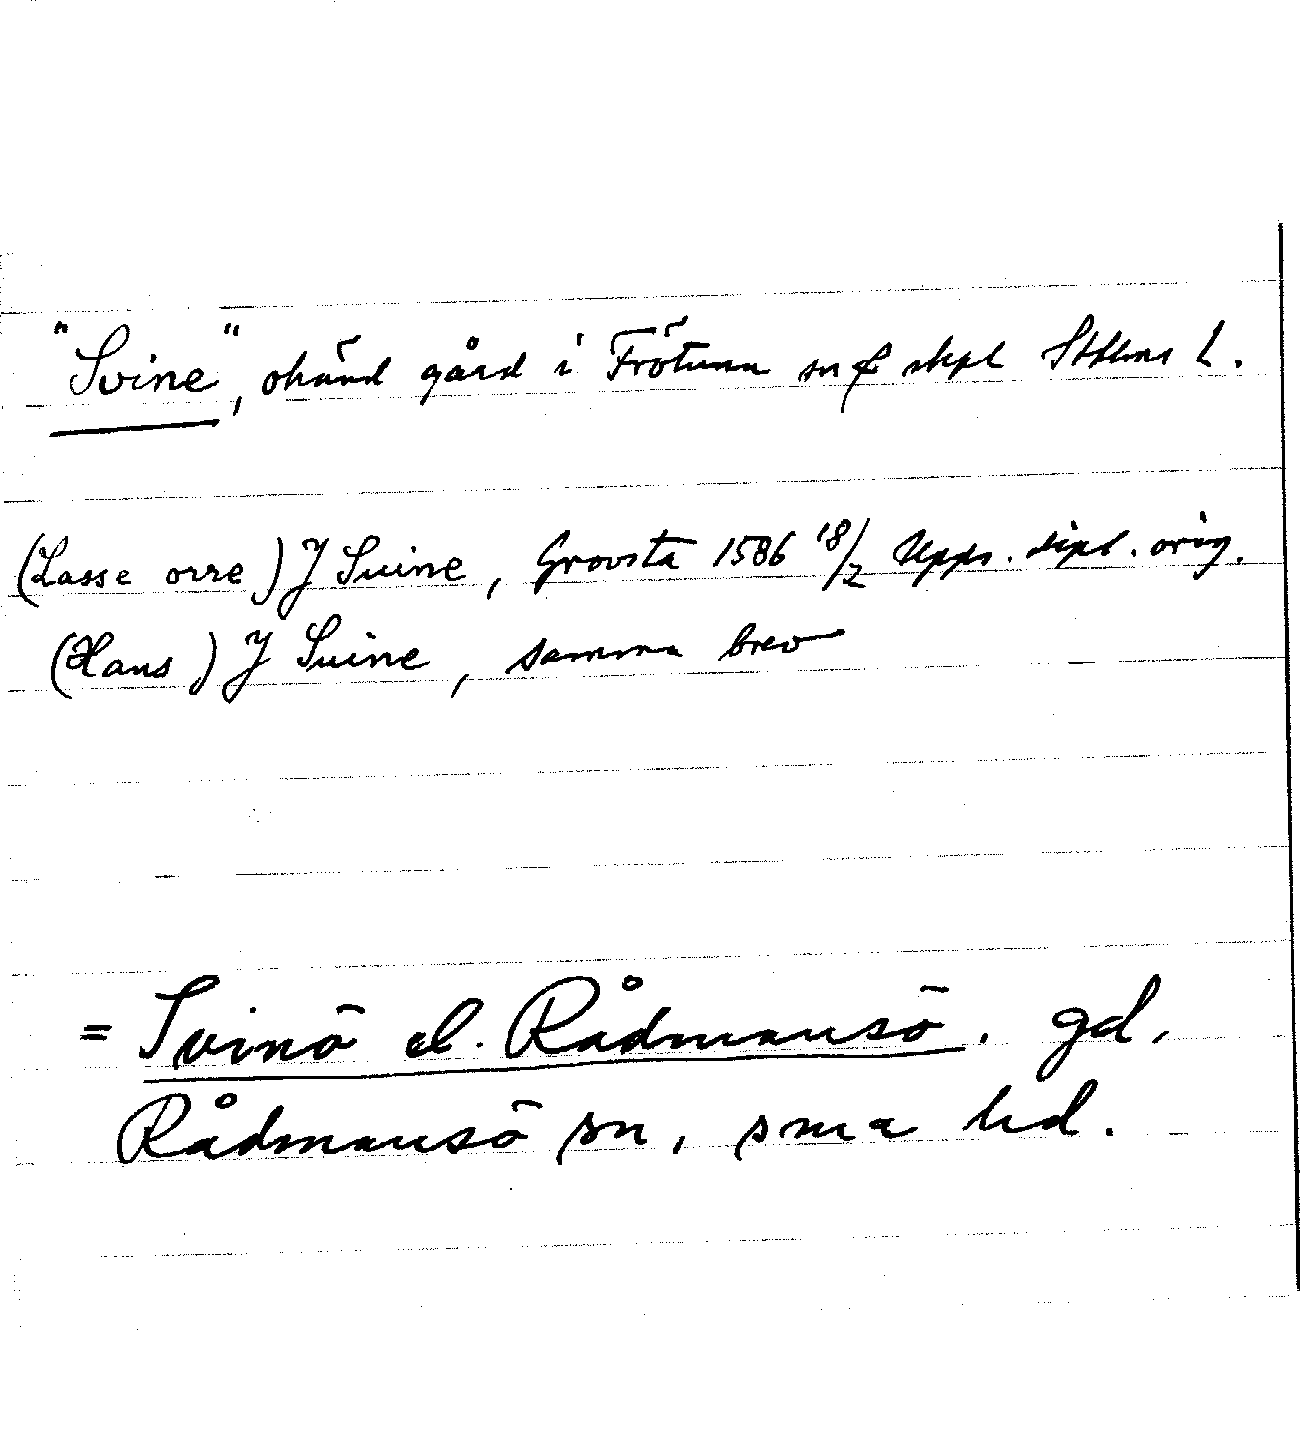 "Svine", okänd gård i Frötuna sn o skpl Sthlms l.
(Lasse orre) J Suine, Grovsta 1586 18/2 Upps. dipl. orig.
(Hans) J Suine, samma brev
= Svinö el. Rådmansö. gd,
Rådmansö sn, sma hd.